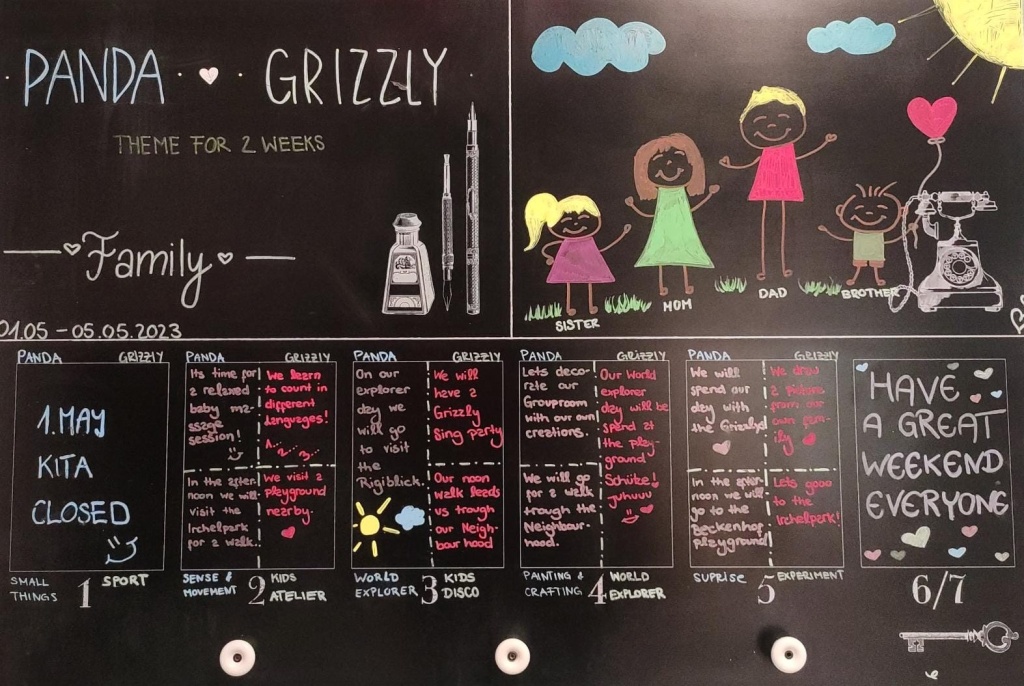 PANDA GRIZZLY
THEME FOR 2 WEEKS
Family
01.05 - 05.05.2023
SISTER
MOM
DAD
BROTHER
PANDA GRIZZLY
1. MAY
KITA
CLOSED
SMALL
THINGS
1
SPORT
PANDA GRIZZLY
Its time for
a relaxed
baby ma-
ssage
session!
We learn
to count in
different
languages!
1... 2... 3...
In the after
noon we will
visit the
Irchelpark
for a walk.
We visit a
playground
nearby.
SENSE &
MOVEMENT
2
KIDS
ATELIER
PANDA GRIZZLY
On our
explorer
day we
will go
to visit
the
Rigiblick.
We will
have a
Grizzly
Sing party
Our noon
walk leads
us trough
our Neigh-
bour hood
WORLD
EXPLORER
3
KIDS
DISCO
PANDA GRIZZLY
Lets deco-
rate our
Grouproom
with our own
creations.
Our World
explorer
day will be
spend at
the play-
ground
Schütze!
Juhuuu
We will go
for a walk
trough the
Neighbour-
hood.
PAINTING &
CRAFTING
4
WORLD
EXPLORER
PANDA GRIZZLY
We will
spend our
day with
the Grizzlys!
We draw
a picture
from our
own fam-
ily
In the after-
noon we will
go to the
Beckenhof
playground!
Lets gooo
to the
Irchelpark!
SUPRISE
5
EXPERIMENT
HAVE
A GREAT
WEEKEND
EVERYONE
6/7